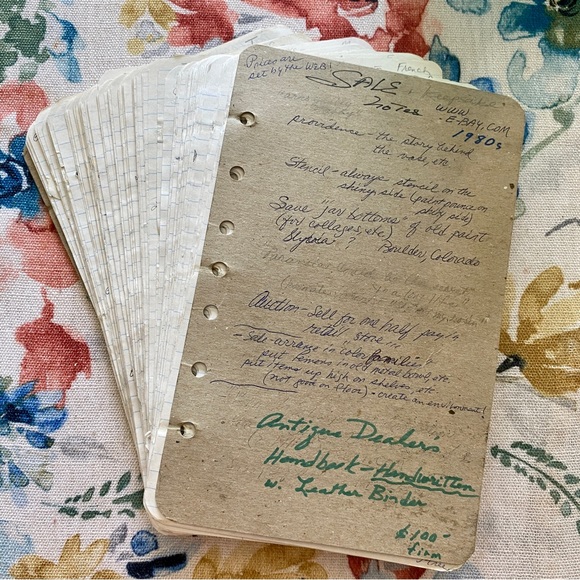 Prices are
set by the WEB!
SALE
notes
WWW
-E-BAY.COM
1980s
French
providence - the story behind
the vase, etc
Stencil - always stencil on the
shiny side (paint pounce on
shiny side)
Save "jar bottoms" of old paint
(for collages, etc)
? Boulder, Colorado
Auction - Sell for one half pay in
retail store.
- Sale - arrange in color families
put lemons in old metal bowl, etc.
put items up high on shelves etc
(not good on floor) - create an environment!
Antique Dealer's
Handbook - Handwritten
w. Leather Binder
$100-
firm